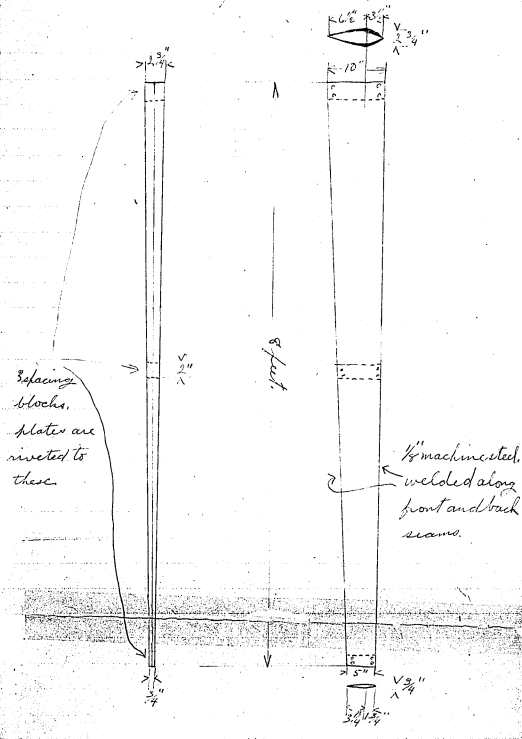 6½" 3½"
2¾"
10"
2¾"
8 feet.
2"
3 spacing
blocks.
plates are
riveted to
these
⅛" machine steel.
welded along
front and back
seams.
5"
¾"
¾"
3¼" 1¾"